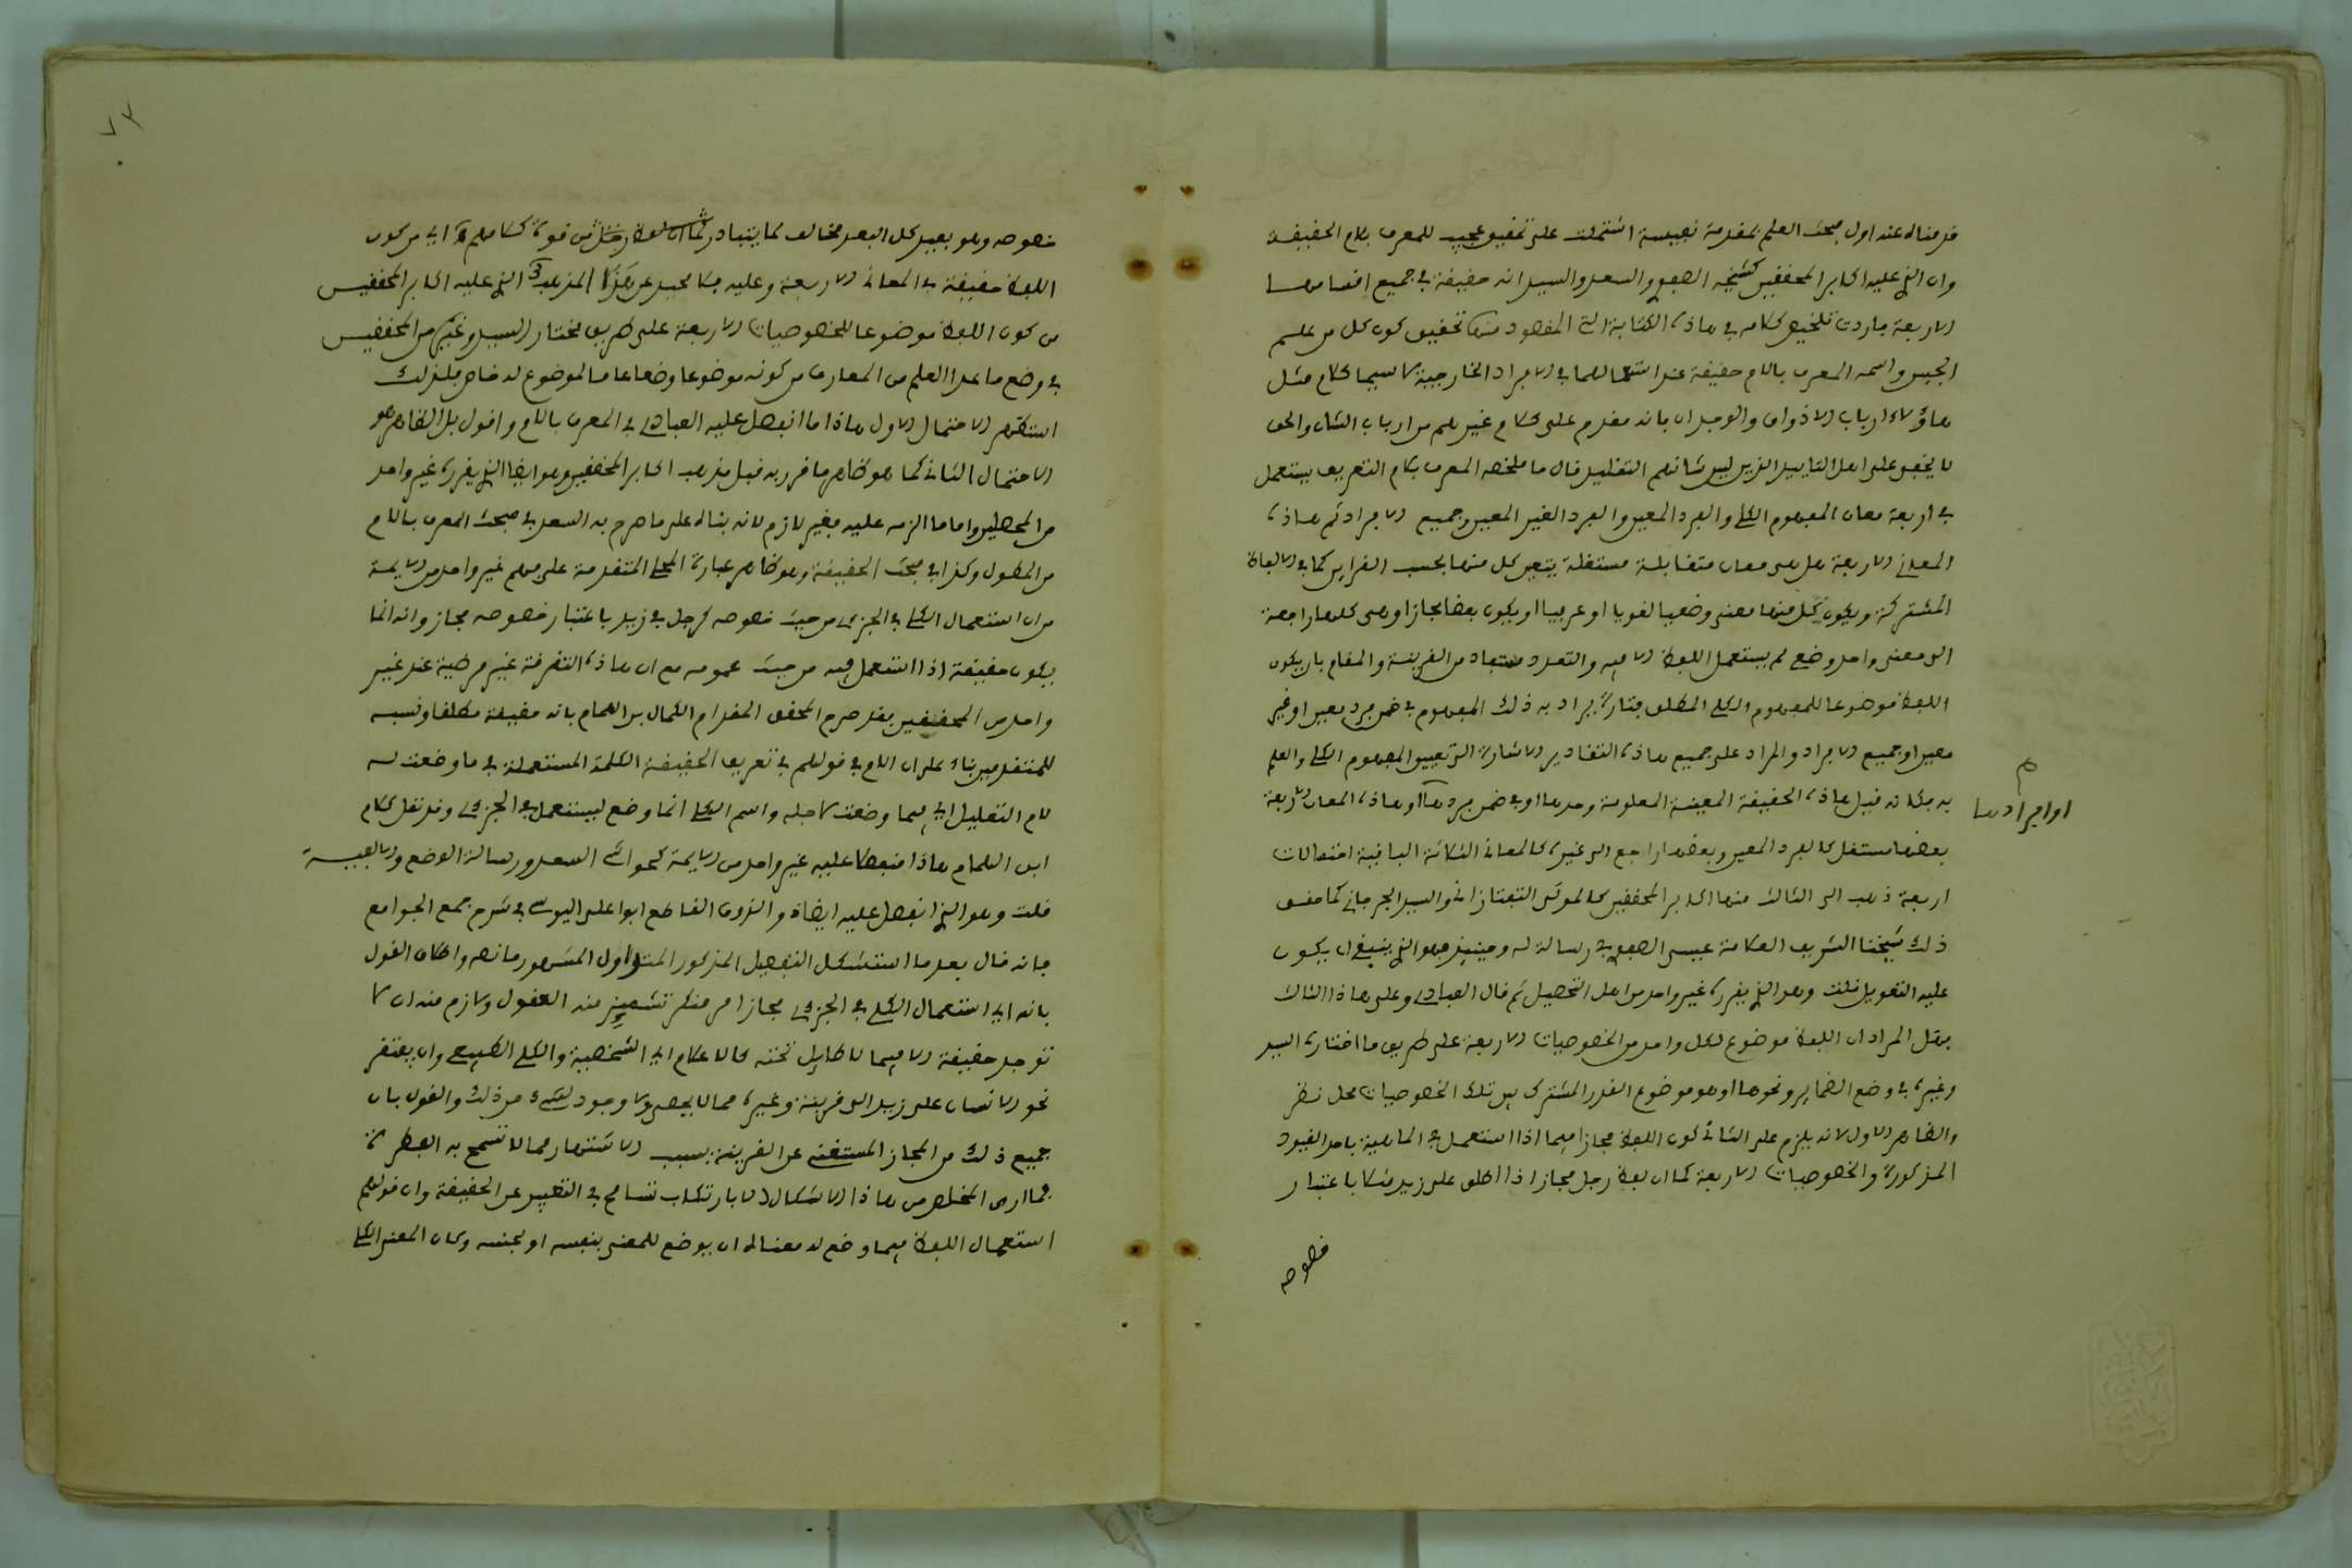 قدمناه عند اول مبحث العلم بمقدمة نفيسة اشتملت على تحقيق عجيب للمعرف بلام الحقيقة
وان الذي عليه اكابر المحققين كشيخه الصفوي والسعد والسيد انه حقيقة في جميع اقسامها
الاربعة فاردت تلخيص كلامه في هاذه الكتابة التي المقصود منها تحقيق كون كل من علم
الجنس واسمه المعرف باللام حقيقة عند استعمالهما في الافراد الخارجية لا سيما كلام مثل
هاؤلاء ارباب الاذواق والوجدان فانه مقدم على كلام غيرهم من ارباب الشان والحق
لا يخفى على اهل التاييد الذين ليس شانهم التقليد قال ما ملخصه المعرف بلام التعريف يستعمل
في اربعة معان المفهوم الكلي والفرد المعين والفرد الغير المعين وجميع الافراد ثم هاذه
المعاني الاربعة هل هي معان متقابلة مستقلة يتعين كل منها بحسب القراين كما في الالفاظ
المشتركة ويكون كل منها معنى وضعيا لغويا او عرفيا او يكون بعضا مجازا او هي كلها راجعة
الى معنى واحد وضعي لم يستعمل اللفظ الا فيه والتعدد مستفاد من القرينة والمقام بان يكون
اللفظ موضوعا للمفهوم الكلي المطلق فتارة يراد به ذلك المفهوم في ضمن فرد معين او غير
معين او جميع الافراد والمراد على جميع هاذه التقادير الاشارة الى تعيين المفهوم الكلي والعلم
به فكانه قيل هاذه الحقيقة المعينة المعلومة وحدها او في ضمن فردها او هاذه المعاني الاربعة
او افرادها
بعضها مستقل كالفرد المعين وبعضها راجع الى غيره كالمعاني الثلاثة الباقية احتمالات
اربعة ذهب الى الثالث منها اكابر المحققين كالمولى التفتازاني والسيد الجرجاني كما حقق
ذلك شيخنا الشريف العلامة عيسى الصفوي في رسالة له وحينئذ فهو الذي ينبغي ان يكون
عليه التعويل قلت وهو الذي يقرره غير واحد من اهل التحصيل ثم قال العبادي وعلى هاذا الثالث
فهل المراد ان اللفظ موضوع لكل واحد من الخصوصيات الاربعة على طريق ما اختاره السيد
وغيره في وضع الضماير ونحوها او هو موضوع للقدر المشترك بين تلك الخصوصيات محل نظر
والظاهر الاول لانه يلزم على الثاني كون اللفظ مجازا فيما اذا استعمل في الماهية باحد القيود
المذكورة والخصوصيات الاربعة كما ان لفظ رجل مجاز اذا اطلق على زيد مثلا باعتبار
خصوصه
خصوصه وهو بعيد كل البعد مخالف لما يتبادر من قوة كلامهم اي من كون
اللفظ حقيقة في المعاني الاربعة وعليه فلا محيد عن المذهب الذي عليه اكابر المحققين
من كون اللفظ موضوعا للخصوصيات الاربعة على طريق مختار السيد وغيره من المحققين
في وضع ما عدا العلم من المعارف من كونه موضوعا وضعا عاما لموضوع له خاص فلذلك
استظهر الاحتمال الاول هاذا ما انفصل عليه العبادي في المعرف باللام واقول بل الظاهر هو
الاحتمال الثاني كما هو ظاهر ما قرر به قبل مذهب اكابر المحققين وهو ايضا الذي يقرره غير واحد
من المحصلين واما ما الزمه عليه فغير لازم لانه بناه على ما صرح به السعد في مبحث المعرف باللام
من المطول وكذا في مبحث الحقيقة وهو ظاهر عبارة المحلي المتقدمة على فهم غير واحد من الايمة
من ان استعمال الكلي في الجزءي من حيث خصوصه كرجل في زيد باعتبار خصوصه مجاز وانه انما
يكون حقيقة اذا استعمل فيه من حيث عمومه مع ان هاذه التفرقة غير مرضية عند غير
واحد من المحققين فقد صرح المحقق المقدام الكمال بن الهمام بانه حقيقة مطلقا ونسبه
للمتقدمين بناء على ان اللام في قولهم في تعريف الحقيقة الكلمة المستعملة في ما وضعت له
لام التعليل اي فيما وضعت لاجله واسم الكلي انما وضع ليستعمل في الجزءي وقد نقل كلام
ابن الهمام هاذا غير واحد من الايمة كحواشي السعد ورسالة الوضع والالفية
قلت وهو الذي انفصل عليه ايضا ابو علي اليوسي في شرح جمع الجوامع
فانه قال بعد ما استشكل التفصيل المذكور المتداول المشهور ما نصه واطلاق القول
بانه اي استعمال الكلي في الجزءي مجاز امر منكر تشمئز منه العقول ولازم منه ان لا
توجد حقيقة الا فيما لا طايل تحته كالاعلام اي الشخصية والكلي الطبيعي وان يفتقر
نحو الانسان على زيد الى قرينة وغيره مما لا يحصر ولا وجود لشيء من ذلك والقول بان
جميع ذلك من المجاز المستغني عن القرينة بسبب الاشتهار مما لا تسمح به الفطرة
فما ارى المخلص من هاذا الاشكال الا بارتكاب تسامح في التعبير عن الحقيقة وان قولهم
استعمال اللفظ فيما وضع له معناه ان يوضع للمعنى بنفسه او لجنسه وكان المعنى الكلي